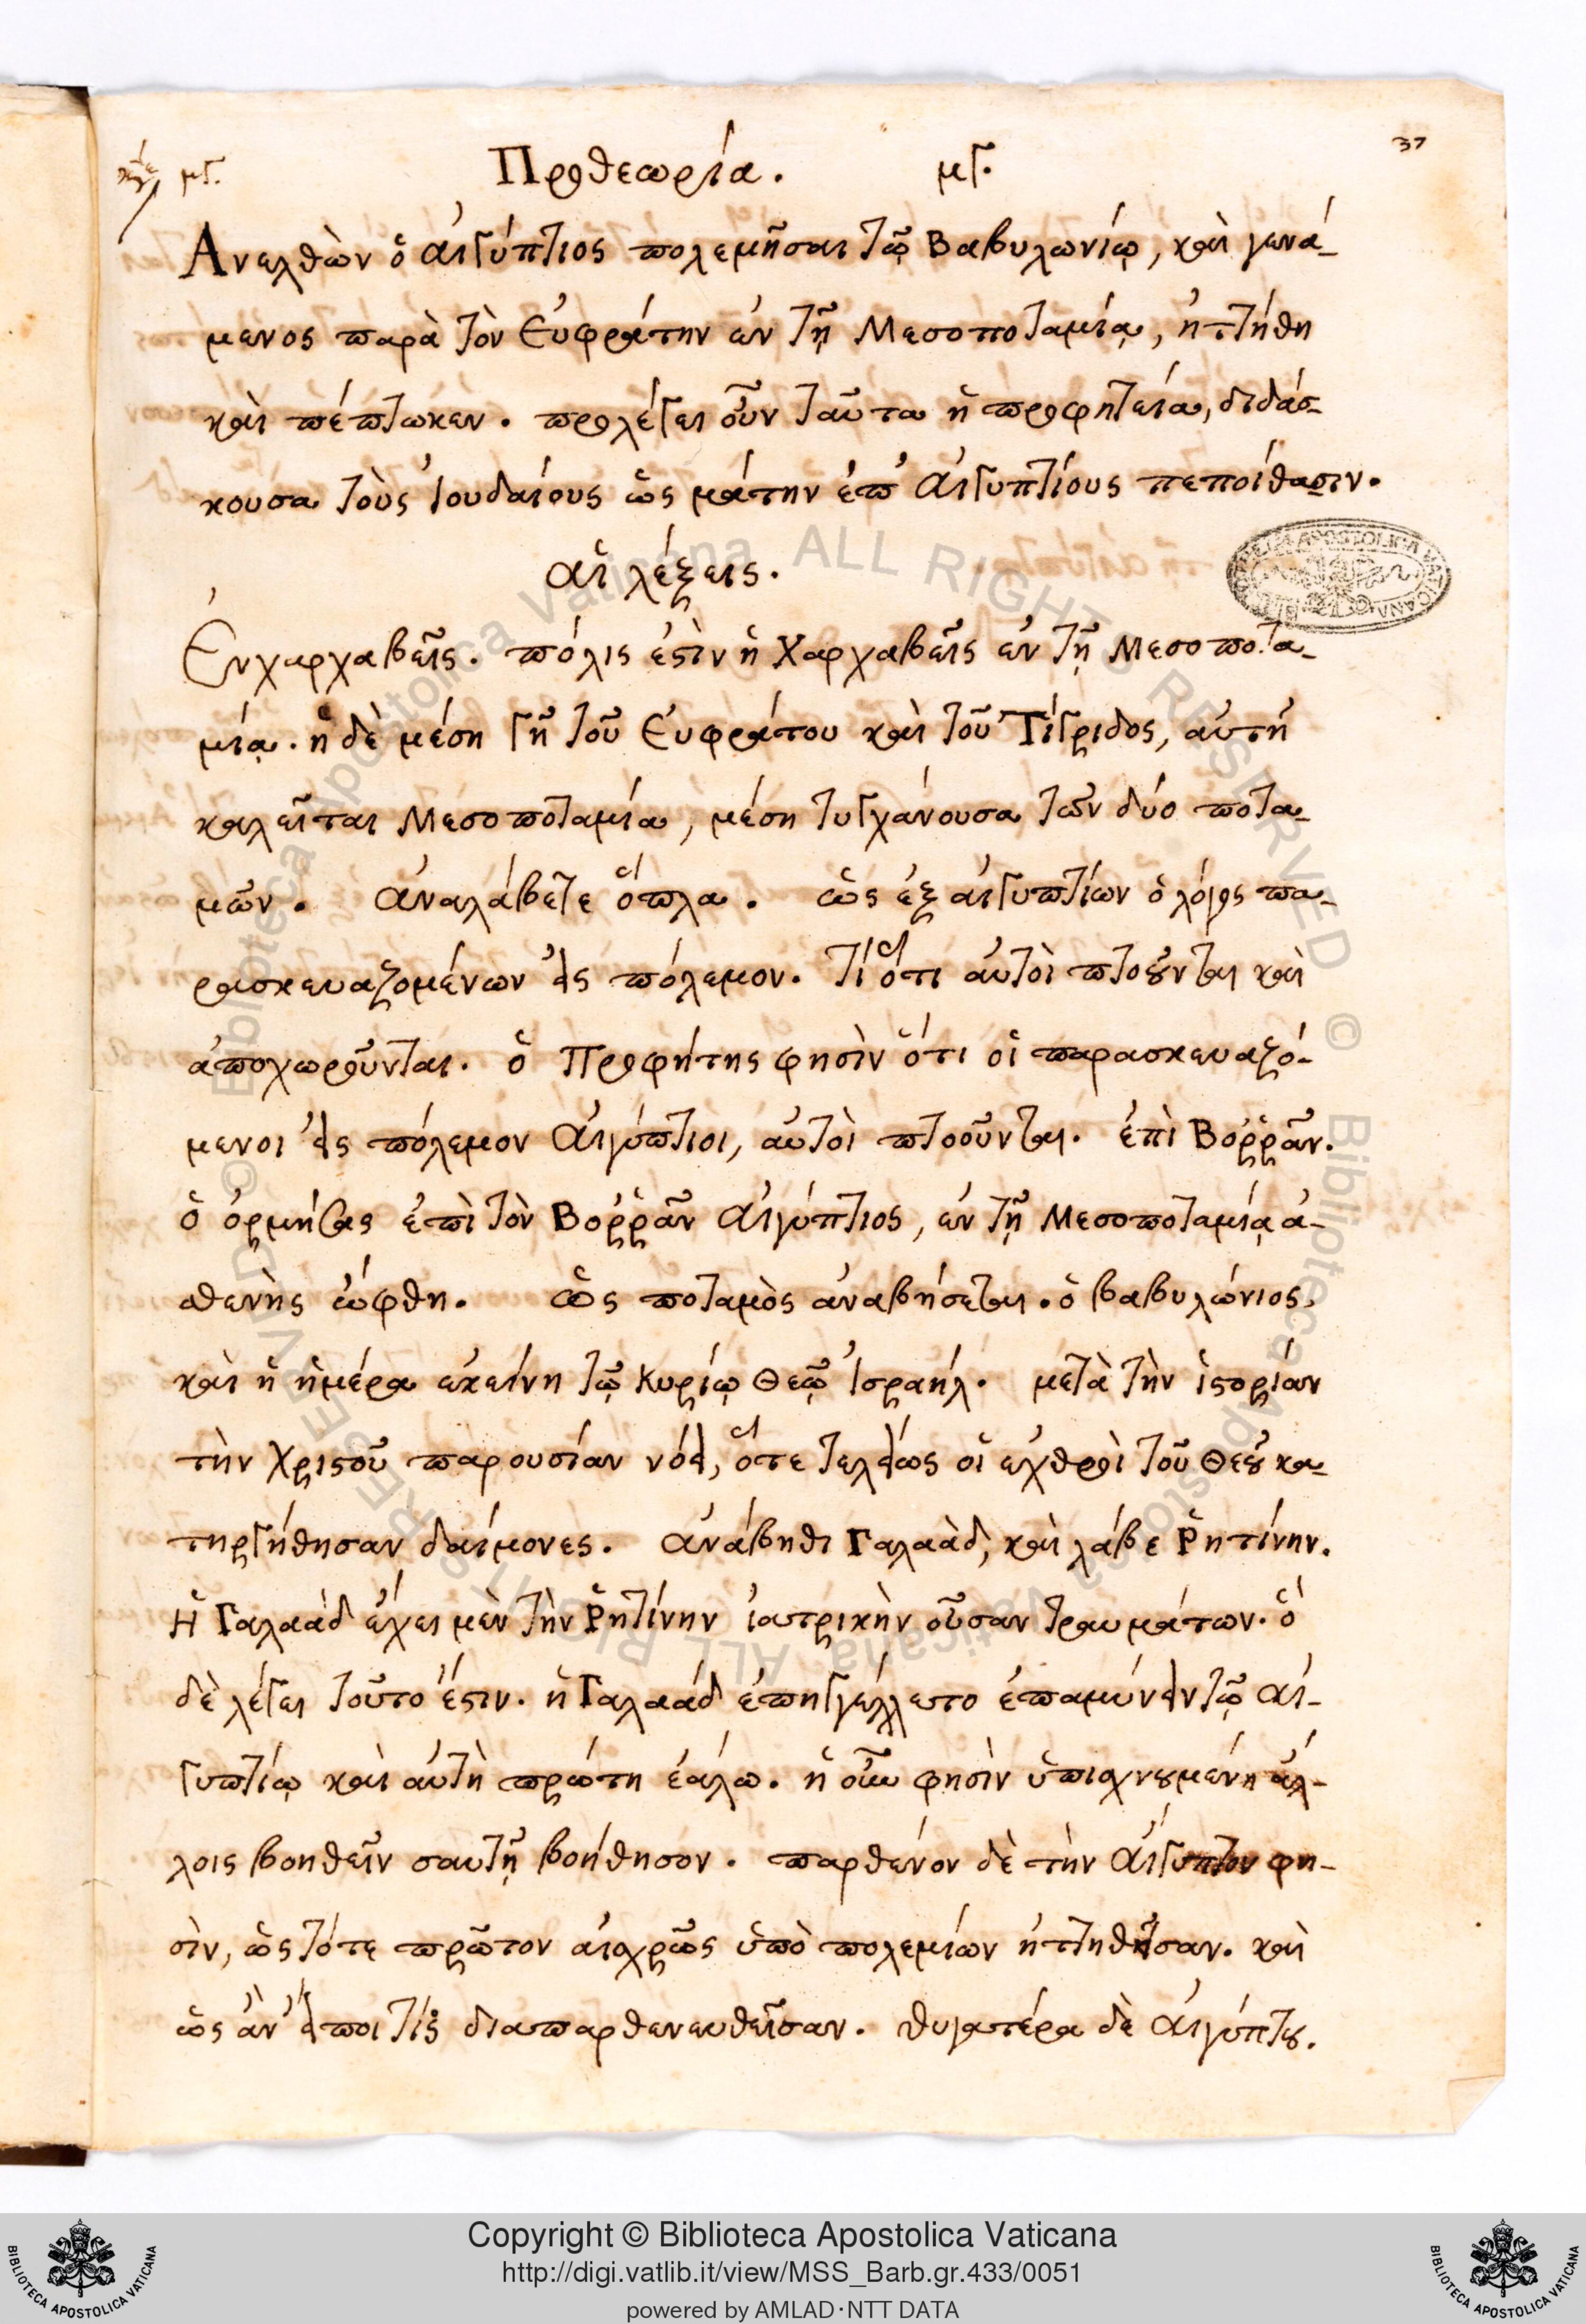 37
μγ. Προθεωρία. μγ.
Ἀνελθὼν ὁ αἰγύπτιος πολεμῆσαι τῷ Βαβυλωνίῳ, καὶ γενά-
μενος παρὰ τὸν Εὐφράτην ἐν τῇ Μεσοποταμίᾳ, ἡττήθη
καὶ πέπτωκεν. προλέγει οὖν ταῦτα ἡ προφητεία, διδάσ-
κουσα τοὺς Ἰουδαίους ὡς μάτην ἐπ' Αἰγυπτίους πεποίθασιν.
αἱ λέξεις.
Ἐν χαρχαβεῖς. πόλις ἐστὶν ἡ Χαρχαβεῖς ἐν τῇ Μεσοποτα-
μίᾳ. ἡ δὲ μέση γῆ τοῦ Εὐφράτου καὶ τοῦ Τίγριδος, αὐτὴ
καλεῖται Μεσοποταμία, μέση τυγχάνουσα τῶν δύο ποτα-
μῶν. ἀναλάβετε ὅπλα. ὡς ἐξ αἰγυπτίων ὁ λόγος πα-
ρασκευαζομένων εἰς πόλεμον. τί ὅτι αὐτοὶ πτοοῦνται καὶ
ἀποχωροῦνται. ὁ Προφήτης φησὶν ὅτι οἱ παρασκευαζό-
μενοι εἰς πόλεμον Αἰγύπτιοι, αὐτοὶ πτοοῦνται. ἐπὶ Βοῤῥᾶν.
ὁ ὁρμήσας ἐπὶ τὸν Βοῤῥᾶν Αἰγύπτιος, ἐν τῇ Μεσοποταμίᾳ ἀ-
σθενὴς ὤφθη. ὡς ποταμὸς ἀναβήσεται. ὁ βαβυλώνιος.
καὶ ἡ ἡμέρα ἐκείνη τῷ Κυρίῳ Θεῷ Ἰσραήλ. μετὰ τὴν ἱστορίαν
τὴν Χριστοῦ παρουσίαν νόει, ὅτε τελείως οἱ ἐχθροὶ τοῦ Θεοῦ κα-
τηργήθησαν δαίμονες. ἀνάβηθι Γαλαὰδ, καὶ λάβε Ῥητίνην.
Ἡ Γαλαὰδ ἔχει μὲν τὴν Ῥητίνην ἰατρικὴν οὖσαν τραυμάτων. ὃ
δὲ λέγει τοῦτο ἔστιν. ἡ Γαλαάδ ἐπηγγέλλετο ἐπαμύνειν τῷ αἰ-
γυπτίῳ καὶ αὐτὴ πρώτη ἑάλω. ἡ οὖν φησὶν ὑπισχνουμένη ἄλ-
λοις βοηθεῖν σαυτῇ βοήθησον. παρθένον δὲ τὴν Αἴγυπτον φη-
σὶν, ὡς τότε πρῶτον αἰσχρῶς ὑπὸ πολεμίων ἡττηθεῖσαν. καὶ
ὡς ἂν εἴποι τίς διαπαρθενευθεῖσαν. θυγατέρα δὲ Αἰγύπτου.
Copyright © Biblioteca Apostolica Vaticana
http://digi.vatlib.it/view/MSS_Barb.gr.433/0051
powered by AMLAD·NTT DATA